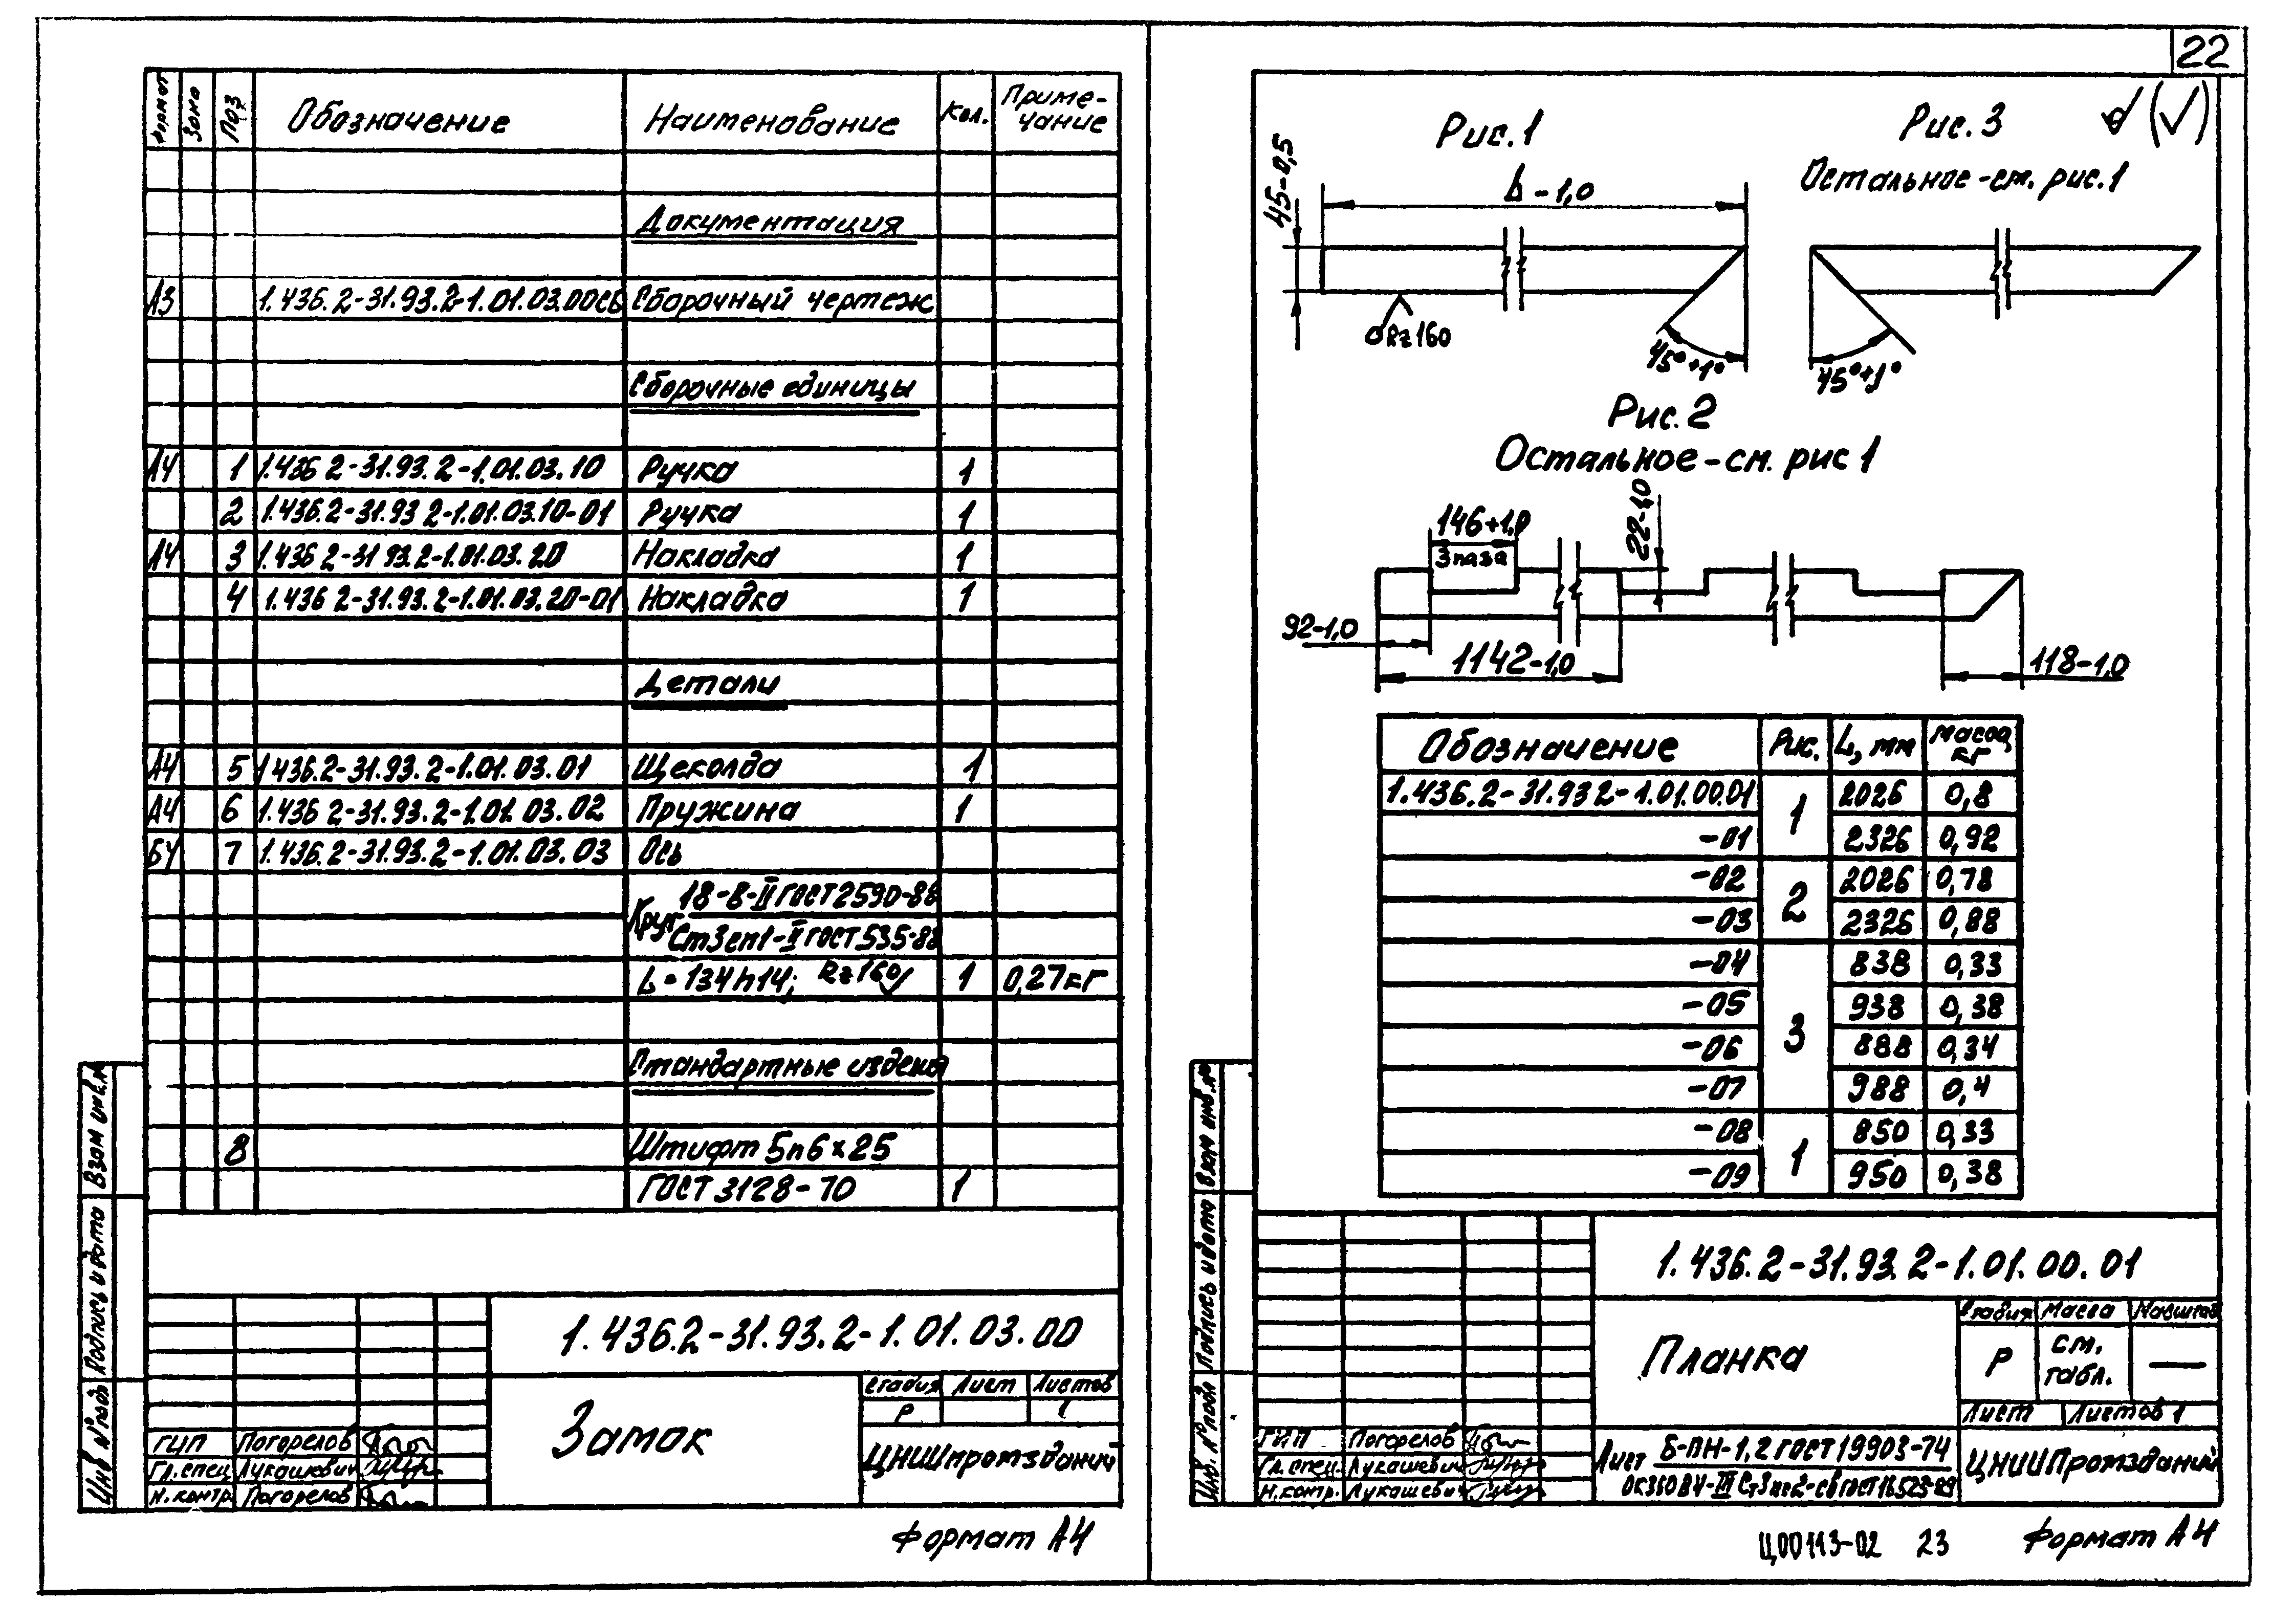 22
Формат
Зона
Поз
Обозначение
Наименование
Кол.
Приме-
чание
Документация
А3 1.436.2-31.93.2-1.01.03.00СБ Сборочный чертеж
Сборочные единицы
А4 1 1.436 2-31.93.2-1.01.03.10 Ручка 1
2 1.436.2-31.93 2-1.01.03.10-01 Ручка 1
А4 3 1.436 2-31 93.2-1.01.03.20 Накладка 1
4 1.436 2-31.93.2-1.01.03.20-01 Накладка 1
Детали
А4 5 1 436.2-31.93.2-1.01.03.01 Щеколда 1
А4 6 1.436 2-31.93.2-1.01.03.02 Пружина 1
БЧ 7 1.436.2-31.93.2-1.01.03.03 Ось
Круг 18-В-II ГОСТ 2590-88
Ст3сп1-II ГОСТ 535-88
L = 134h14; Rz160 1 0,27кг
Стандартные издели
8 Штифт 5п6×25
ГОСТ 3128-70 1
Взам инв.№
Подпись и дата
Инв №подл
1.436.2-31.93.2-1.01.03.00
Замок
Стадия Лист Листов
Р 1
ЦНИИпромзданий
ГИП Погорелов
Гл.спец Лукашевич
Н.контр. Погорелов
Формат А4
Рис.1
Рис.3
Остальное-см. рис.1
L-1,0
45-0,5
Rz160
45°+1°
45°+1°
Рис.2
Остальное-см. рис 1
146+1,0
3 паза
22-1,0
92-1,0
1142-1,0
118-1,0
Обозначение Рис. L, мм Масса, кг
1.436.2-31.93 2-1.01.00.01 1 2026 0,8
-01 2326 0,92
-02 2 2026 0,78
-03 2326 0,88
-04 3 838 0,33
-05 938 0,38
-06 888 0,34
-07 988 0,4
-08 1 850 0,33
-09 950 0,38
Взам инв.№
Подпись и дата
Инв. №подл
1.436.2-31.93.2-1.01.00.01
Планка
Стадия Масса Масштаб
Р см. табл. —
Лист Листов 1
ГИП Погорелов
Гл.спец. Лукашевич
Н.контр. Лукашевич
Лист Б-ПН-1,2 ГОСТ 19903-74
ОК360В4-III Ст3пс2-св ГОСТ 16523-89
ЦНИИПромзданий
Ц00113-02 23
Формат А4